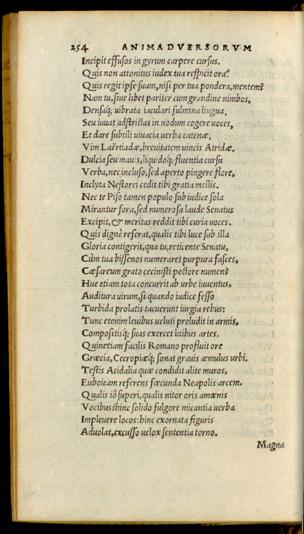 254 ANIMADVERSORVM
Incipit effusos in gyrum carpere cursus.
Quis non attonitus iudex tua respicit ora?
Quis regit ipse suam, nisi per tua pondera, mentem?
Nam tu, siue libet pariter cum grandine nimbos,
Densaq́; uibrata iaculari fulmina lingua,
Seu iuuat adstrictas in nodum cogere uoces,
Et dare subtili uiuacia uerba catenæ,
Vim Laërtiadæ, breuitatem uincis Atridæ.
Dulcia seu mauis, liquidoq́; fluentia cursu
Verba, nec incluso, sed aperto pingere flore,
Inclyta Nestorei cedit tibi gratia mellis.
Nec te Piso tamen populo sub iudice sola
Mirantur fora, sed numerosa laude Senatus
Excipit, & meritas reddit tibi curia uoces.
Quis dignè referat, qualis tibi luce sub illa
Gloria contigerit, qua tu, reticente Senatu,
Cùm tua bissenos numeraret purpura fasces,
Cæsareum grato cecinisti pectore numen?
Hue etiam tota concurrit ab urbe iuuentus,
Auditura uirum, si quando iudice fesso
Turbida prolatis tacuerunt iurgia rebus:
Tunc etenim leuibus ueluti proludit in armis,
Compositisq́; suas exercet litibus artes.
Quinetiam facilis Romano profluit ore
Græcia, Cecropiæq́; sonat grauis æmulus urbi.
Testis Acidalia quæ condidit alite muros,
Euboicam referens fœcunda Neapolis arcem.
Qualis iô superi, qualis nitor oris amœnis
Vocibus? hinc solido fulgore micantia uerba
Impleuere locos: hinc exornata figuris
Aduolat, excusso uelox sententia torno.
Magna